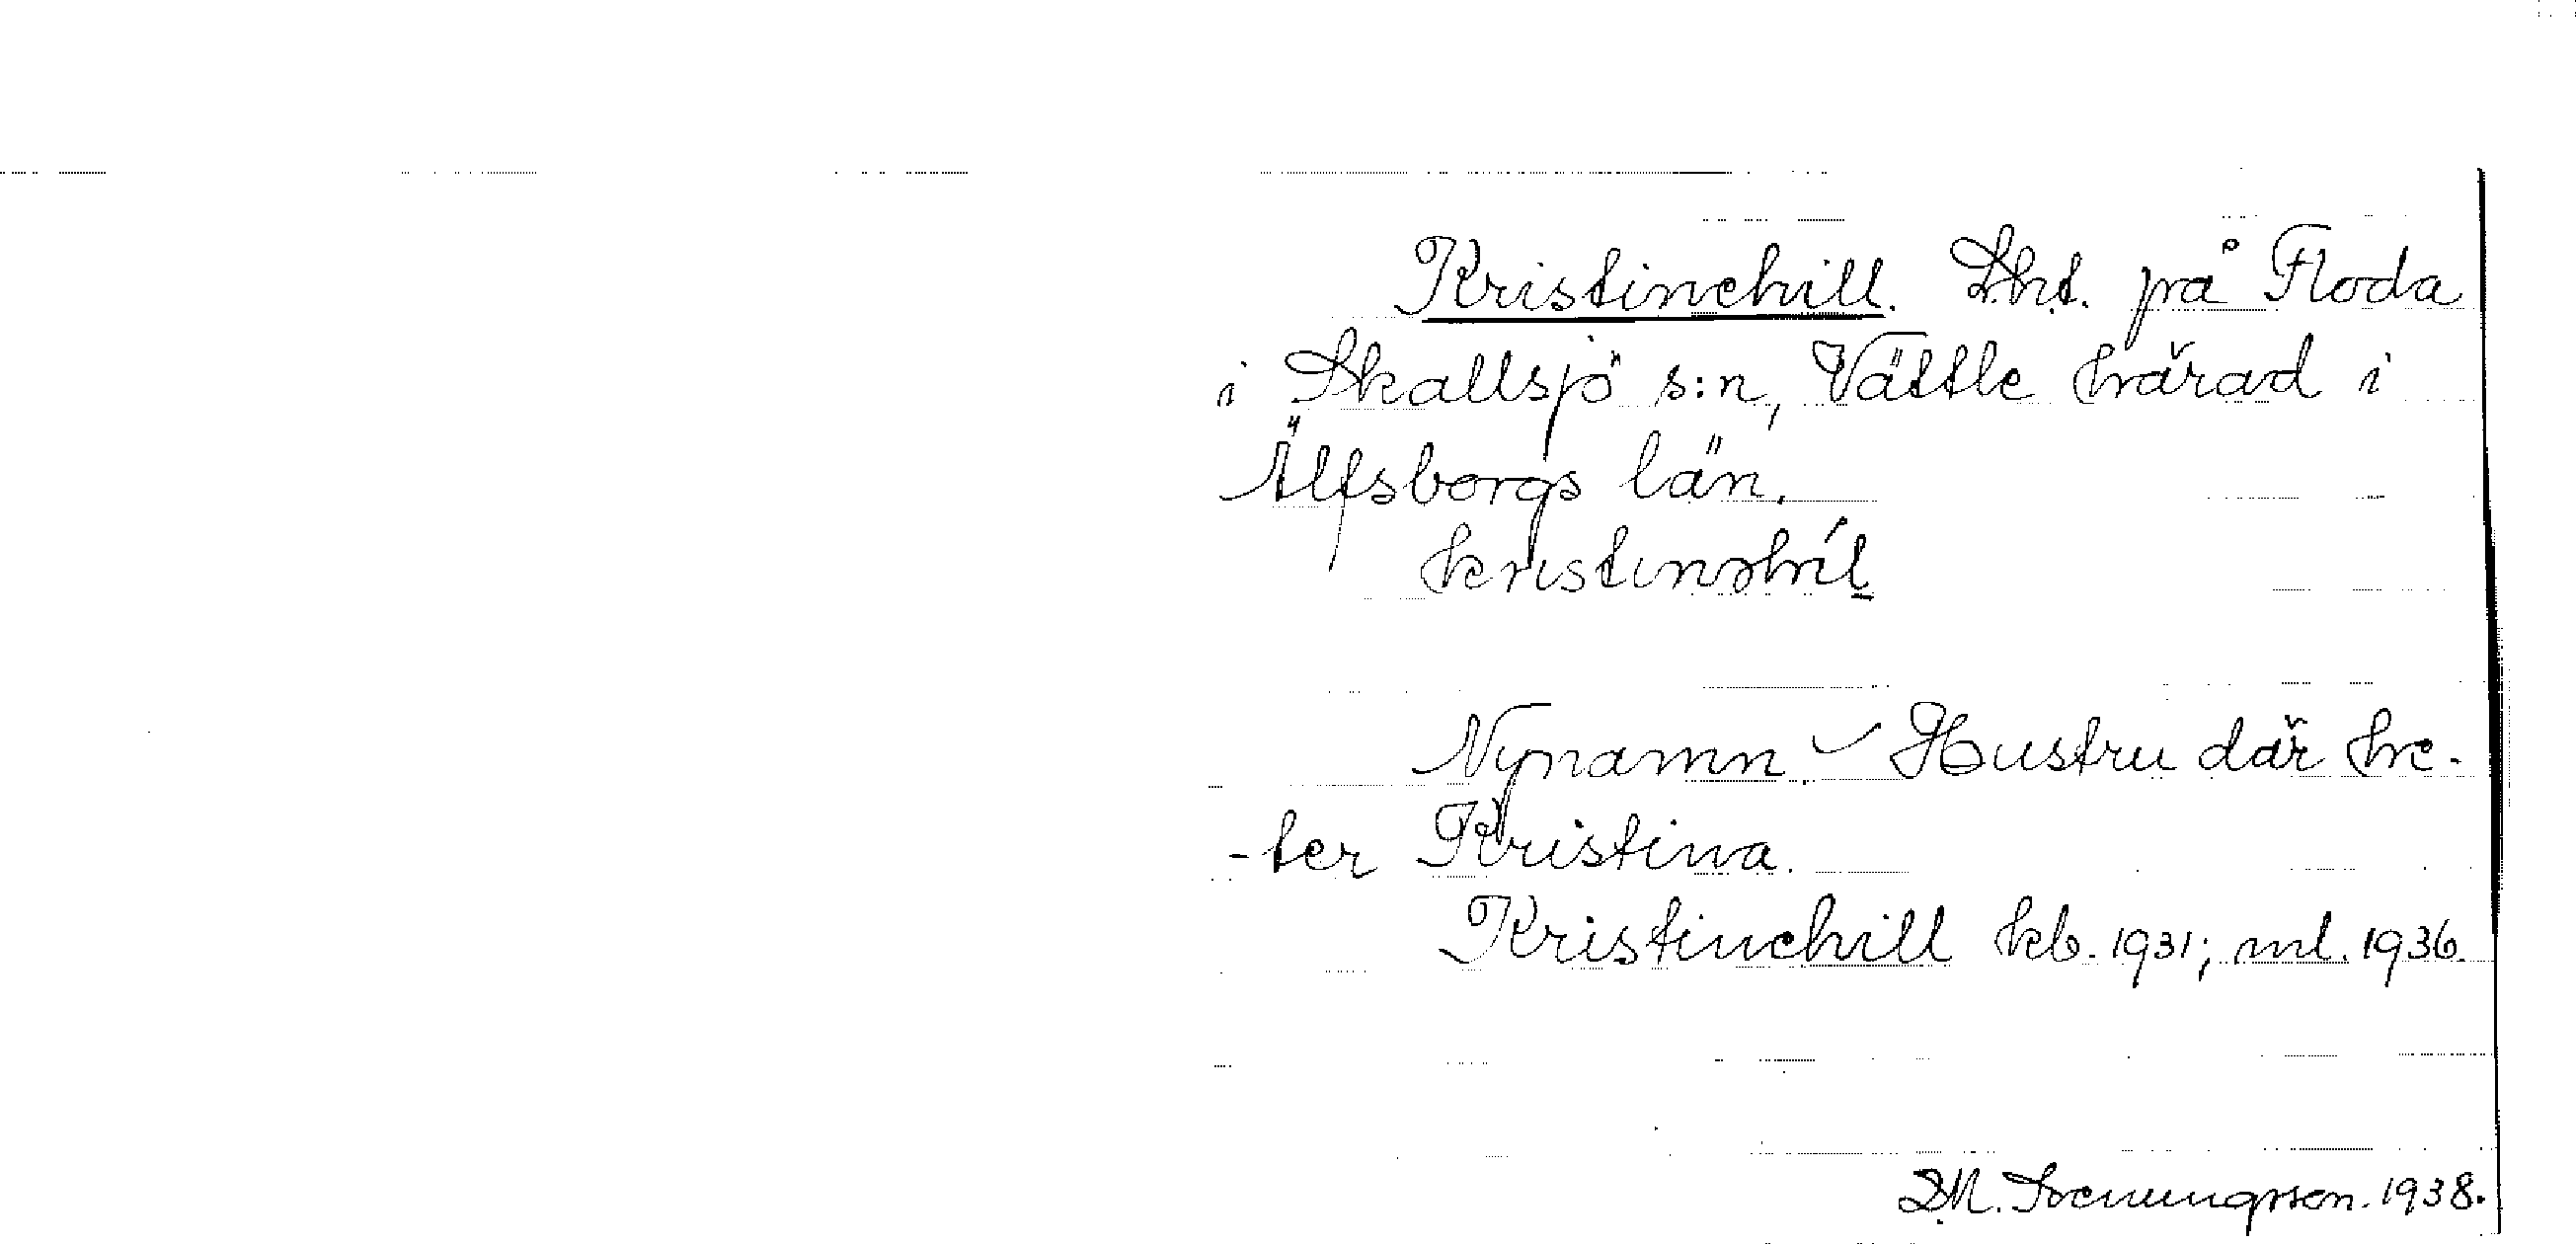 Kristinehill. Lht. på Floda
i Skallsjö s:n, Vättle härad i
Älfsborgs län.
kristinəhíl
Nynamn. Hustru där he-
-ter Kristina.
Kristinehill kb. 1931; ml. 1936.
S.M. Svenungsson. 1938.